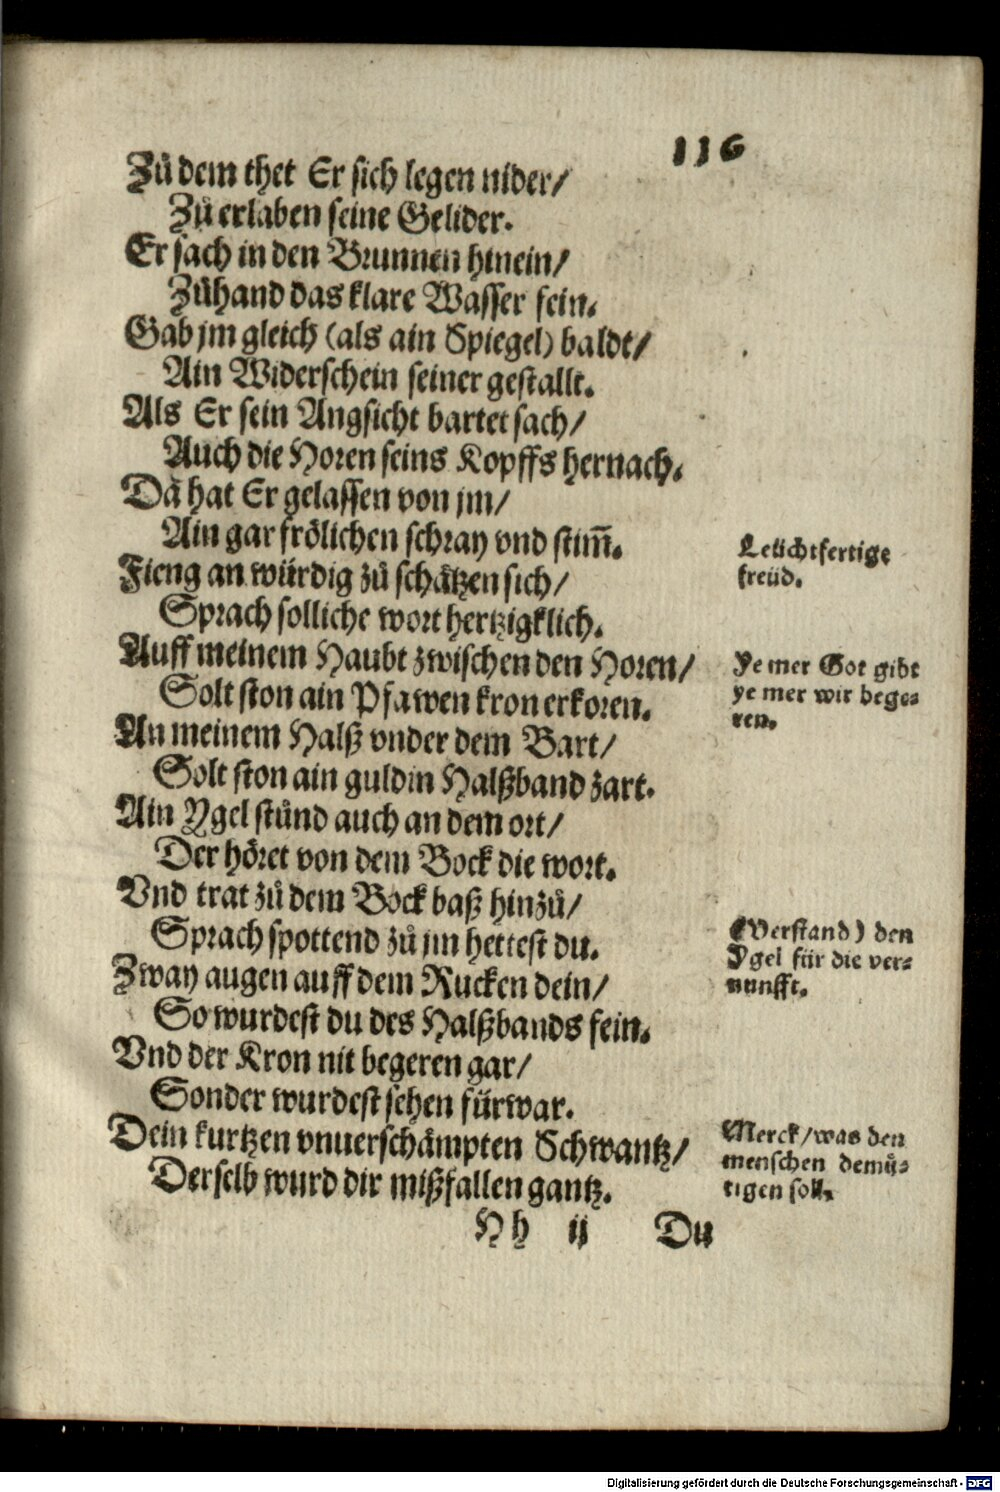 116
Zů dem thet Er sich legen nider/
Zů erlaben seine Gelider.
Er sach in den Brunnen hinein/
Zůhand das klare Wasser fein.
Gab jm gleich (als ain Spiegel) baldt/
Ain Widerschein seiner gestallt.
Als Er sein Angsicht bartet sach/
Auch die Horen seins Kopffs hernach.
Dā hat Er gelassen von jm/
Ain gar frölichen schray vnd stim̄.
Leüchtfertige
freüd.
Fieng an würdig zů schätzen sich/
Sprach solliche wort hertzigklich.
Auff meinem Haubt zwischen den Horen/
Solt ston ain Pfawen kron erkoren.
Ye mer Got gibt
ye mer wir bege⸗
ren.
An meinem Halß vnder dem Bart/
Solt ston ain guldin Halßband zart.
Ain Ygel stůnd auch an dem ort/
Der höret von dem Bock die wort.
Vnd trat zů dem Bock baß hinzů/
Sprach spottend zů jm hettest du.
(Verstand) den
Ygel für die ver⸗
nunfft.
Zway augen auff dem Rucken dein/
So wurdest du des Halßbands fein.
Vnd der Kron nit begeren gar/
Sonder wurdest sehen fürwar.
Dein kurtzen vnuerschämpten Schwantz/
Derselb wurd dir mißfallen gantz.
Merck/was den
menschen demü⸗
tigen soll.
Hh ij Du
Digitalisierung gefördert durch die Deutsche Forschungsgemeinschaft - DFG